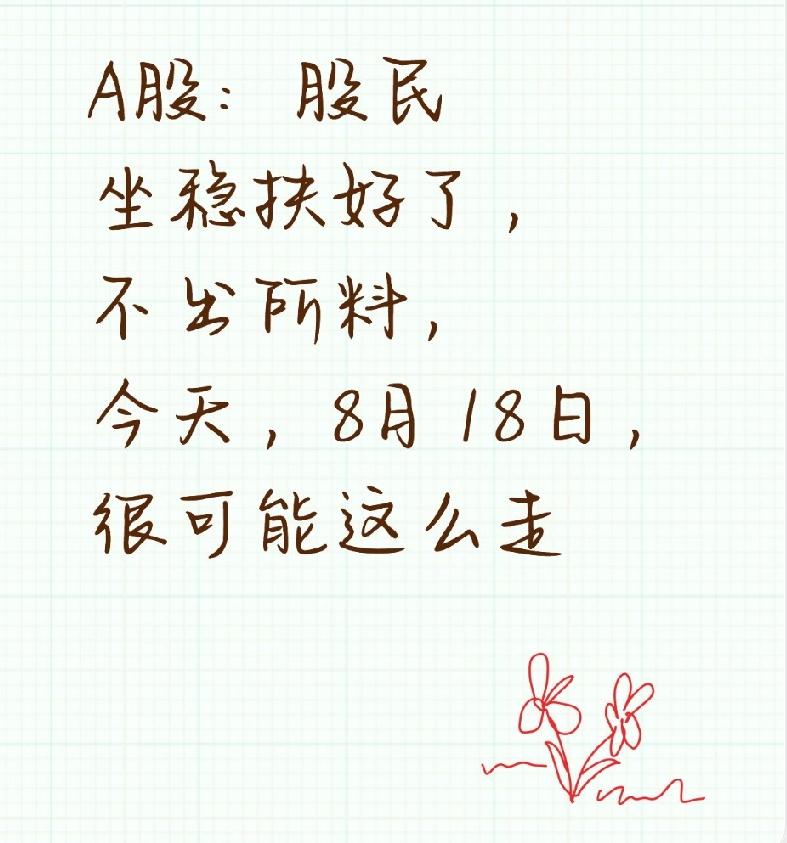 A股：股民
坐稳扶好了，
不出所料，
今天，8月18日，
很可能这么走